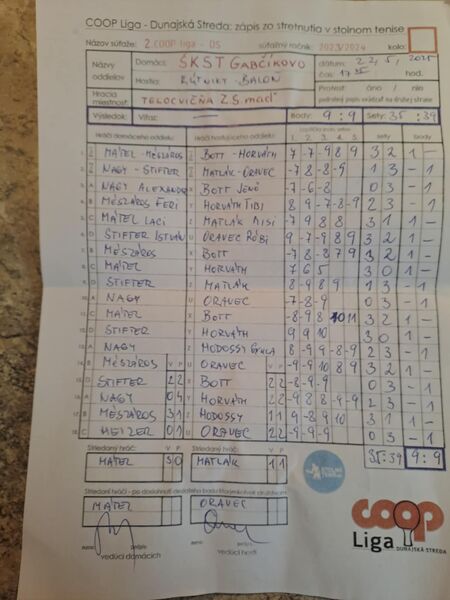 COOP Liga - Dunajská Streda: zápis zo stretnutia v stolnom tenise
Názov súťaže: 2. COOP liga - DS súťažný ročník: 2023/2024 kolo:
Názvy oddielov Domáci: ŠKST GABČÍKOVO dátum: 22, 5, 2025
Hostia: BALON čas: 17 hod.
Hracia miestnosť TELOCVIČŇA Z.Š. Protest: áno / nie
Výsledok: Víťaz: — Body: 9 : 9 Sety: 35 : 39
Hráči domáceho oddielu Hráči hosťujúceho oddielu 1 2 3 4 5 sety body
MÁTEL - MÉSZÁROS BOTT - HORVÁTH 7 -7 -9 8 9 3 2 1 –
NAGY - STIFTER MATLÁK - ORAVEC -7 8 -8 -9 1 3 – 1
NAGY ALEXANDER BOTT JENŐ -7 -6 -8 0 3 – 1
MÉSZÁROS FERI HORVÁTH TIBI 8 9 -7 -8 -9 2 3 – 1
MÁTEL LACI MATLÁK MISI -7 9 8 8 3 1 1 –
STIFTER ISTVÁN ORAVEC RÓBI 9 -7 -9 8 9 3 2 1 –
MÉSZÁROS BOTT -7 8 -8 7 9 3 2 1 –
MÁTEL HORVÁTH 7 6 5 3 0 1 –
STIFTER MATLÁK 8 -9 8 9 3 1
NAGY ORAVEC -7 -8 -9 0 3 – 1
MÁTEL BOTT -8 -9 8 10 11 3 2 1 –
STIFTER HORVÁTH 9 9 10 3 0 1 –
NAGY MODOSSY GYULA 8 -9 9 -8 -9 2 3 – 1
MÉSZÁROS V P ORAVEC V P -9 -9 10 8 9 3 2 1 –
STIFTER 2 2 BOTT 2 2 -8 -9 -9 0 3 – 1
NAGY 0 4 HORVÁTH 2 2 -9 8 8 -9 -9 2 3 – 1
MÉSZÁROS 3 1 MODOSSY 1 1 9 -8 9 10 3 1 1 –
0 1 ORAVEC 2 2 -9 -9 -9 0 3 – 1
Striedaný hráč: V P Striedaný hráč: V P 35:39 9:9
MÁTEL 3 0 MATLÁK 1 1
STOLNÝ TENIS
MÁTEL ORAVEC
vedúci domácich vedúci hostí
coop
Liga DUNAJSKÁ STREDA